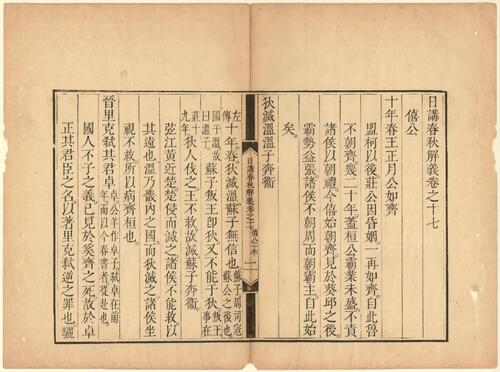 日講春秋解義卷之十七
僖公
十年春王正月公如齊
盟柯以後莊公因昏姻一再如齊自此魯
不朝齊幾二十年蓋桓公霸業未盛不責
諸侯以朝禮今僖始朝齊見於葵邱之後
霸勢益張諸侯不朝周而朝霸主自此始
矣
狄滅溫溫子奔衞
日講春秋解義卷之十七 僖公十年 一
左傳十年春狄滅溫蘇子無信也蘇子周司寇蘇公之後也
國于溫故曰溫子蘇子叛王即狄又不能于狄叛王事在
莊十九年狄人伐之王不救故滅蘇子奔衞
弦江黃近楚楚侵而滅之諸侯不能救以
其遠也溫乃畿內之國而狄滅之諸侯坐
視不救所以病齊桓也
晉里克弒其君卓卓公羊作卓子弒卓在前年而以今春書者從赴也
國人不子之義已見於奚齊之死故於卓
正其君臣之名以著里克弒逆之罪也驪